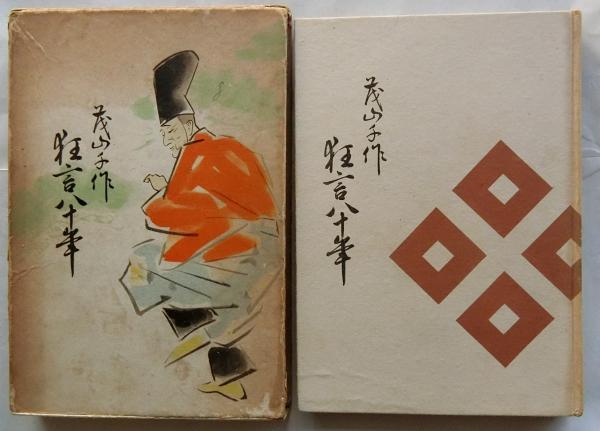 茂山千作
狂言八十年
茂山千作
狂言八十年